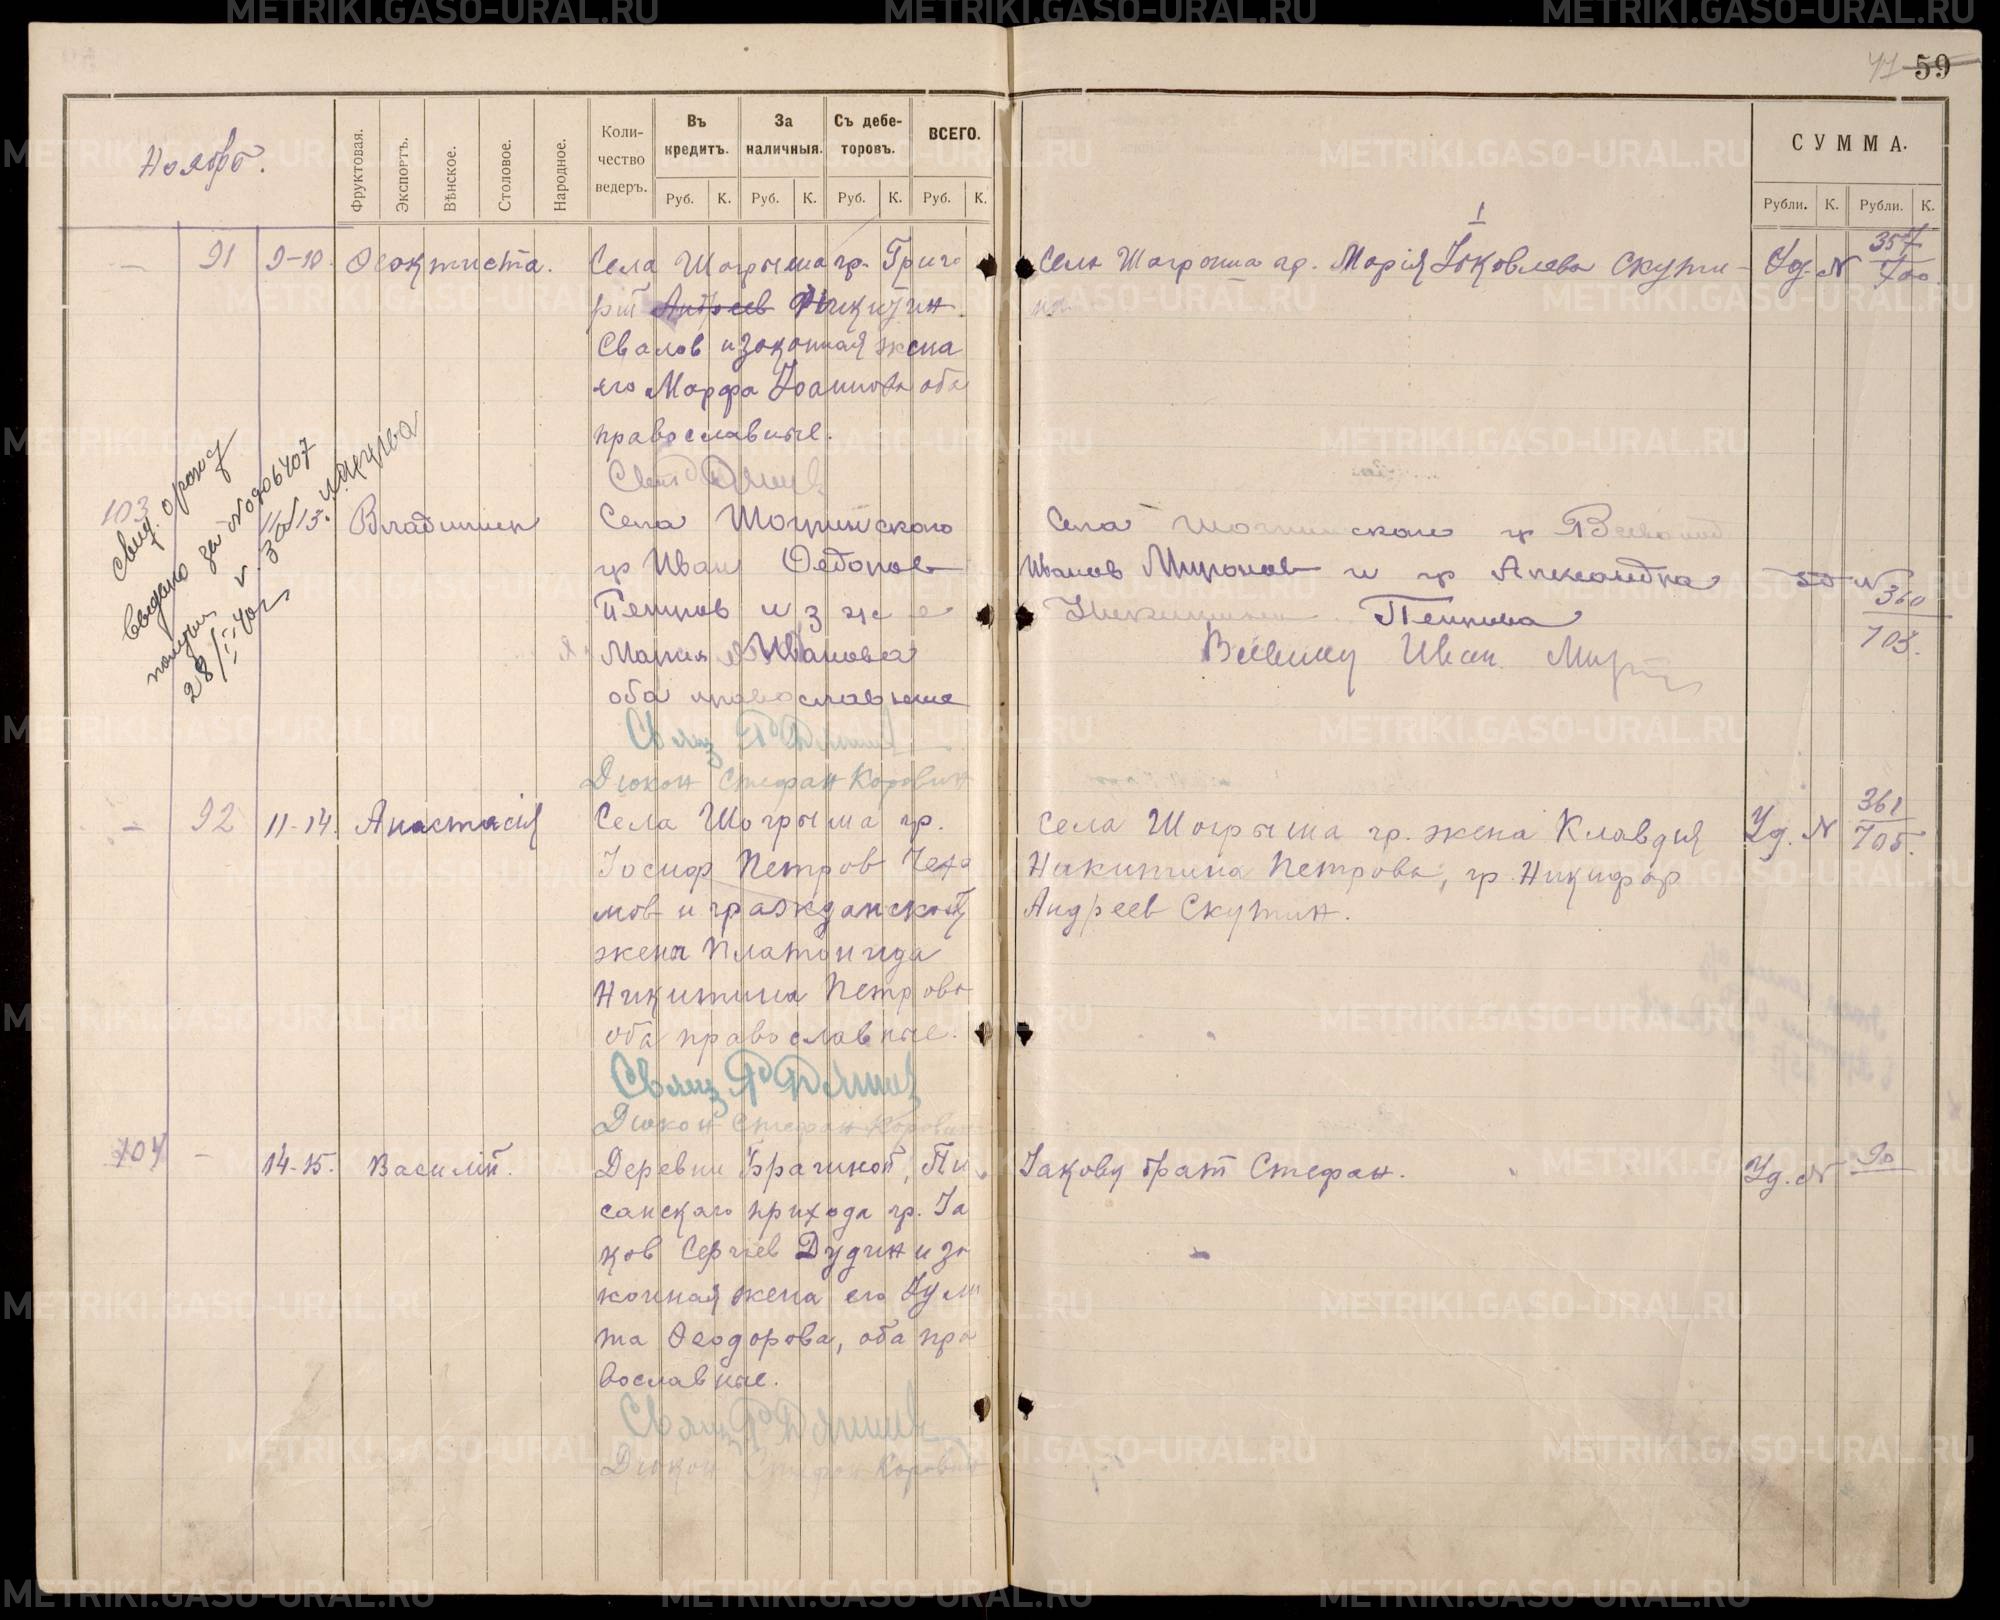 59
Ноябрь.
Фруктовая.
Экспортъ.
Вѣнское.
Столовое.
Народное.
Коли-
чество
ведеръ.
Въ
кредитъ.
За
наличныя.
Съ дебе-
торовъ.
ВСЕГО.
Руб. К. Руб. К. Руб. К. Руб. К.
СУММА.
Рубли. К. Рубли. К.
— 91 9-10. Феоктиста.
Села Шогрыша гр. Григо
рій Андреев Никитин
Свалов и законная жена
его Марфа Іоаннова оба
православные.
Села Шогрыша гр. Марія Яковлева Скути-
на.
Уд. N 357
700.
103
Свид. о рожд
выдано за N 0906407
28/II-40г
Владимир
Села Шогринского
гр Иван Федоров
Петров и з жена
Мария Иванова
оба православные
Дюкон Стефан Коровин
Села Шогринского гр
Иванов Миронов и гр Александра
Петрова
Иван
N 360
703.
— 92 11-14. Анастасія
Села Шогрыша гр.
Іосиф Петров Чеха
мов и гражданской
жена Платонида
Никитина Петрова
оба православные.
Дюкон Стефан Коровин
Села Шогрыша гр. жена Клавдия
Никитина Петрова, гр. Никифор
Андреев Скутин.
Уд. N 361
705.
104 — 14-15. Василій.
Деревни Брагиной, Пи
санскаго прихода гр. Іа
ков Сергіев Дудин и за
конная жена его Іули
та Феодорова, оба пра
вославные.
Дюкон Стефан Коровин
Іакову брат Стефан.
Уд. N 90
METRIKI.GASO-URAL.RU